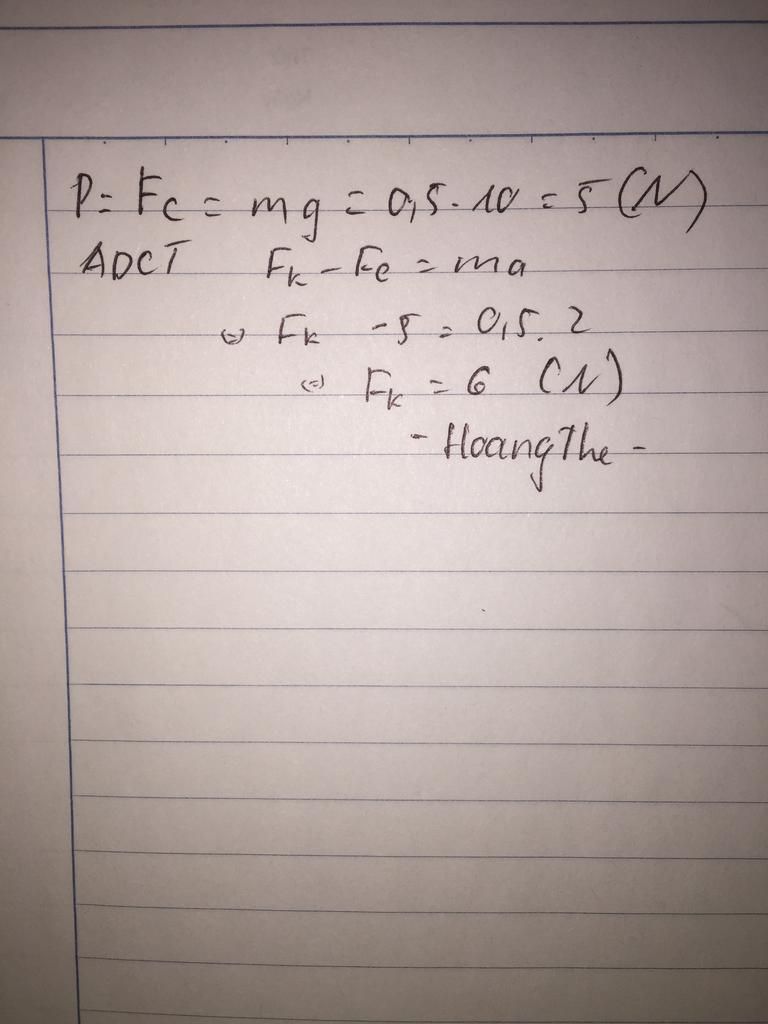 P = Fc = mg = 0,5.10 = 5 (N)
ADCT Fk - Fc = ma
<=> Fk - 5 = 0,5.2
<=> Fk = 6 (N)
- HoangThe -